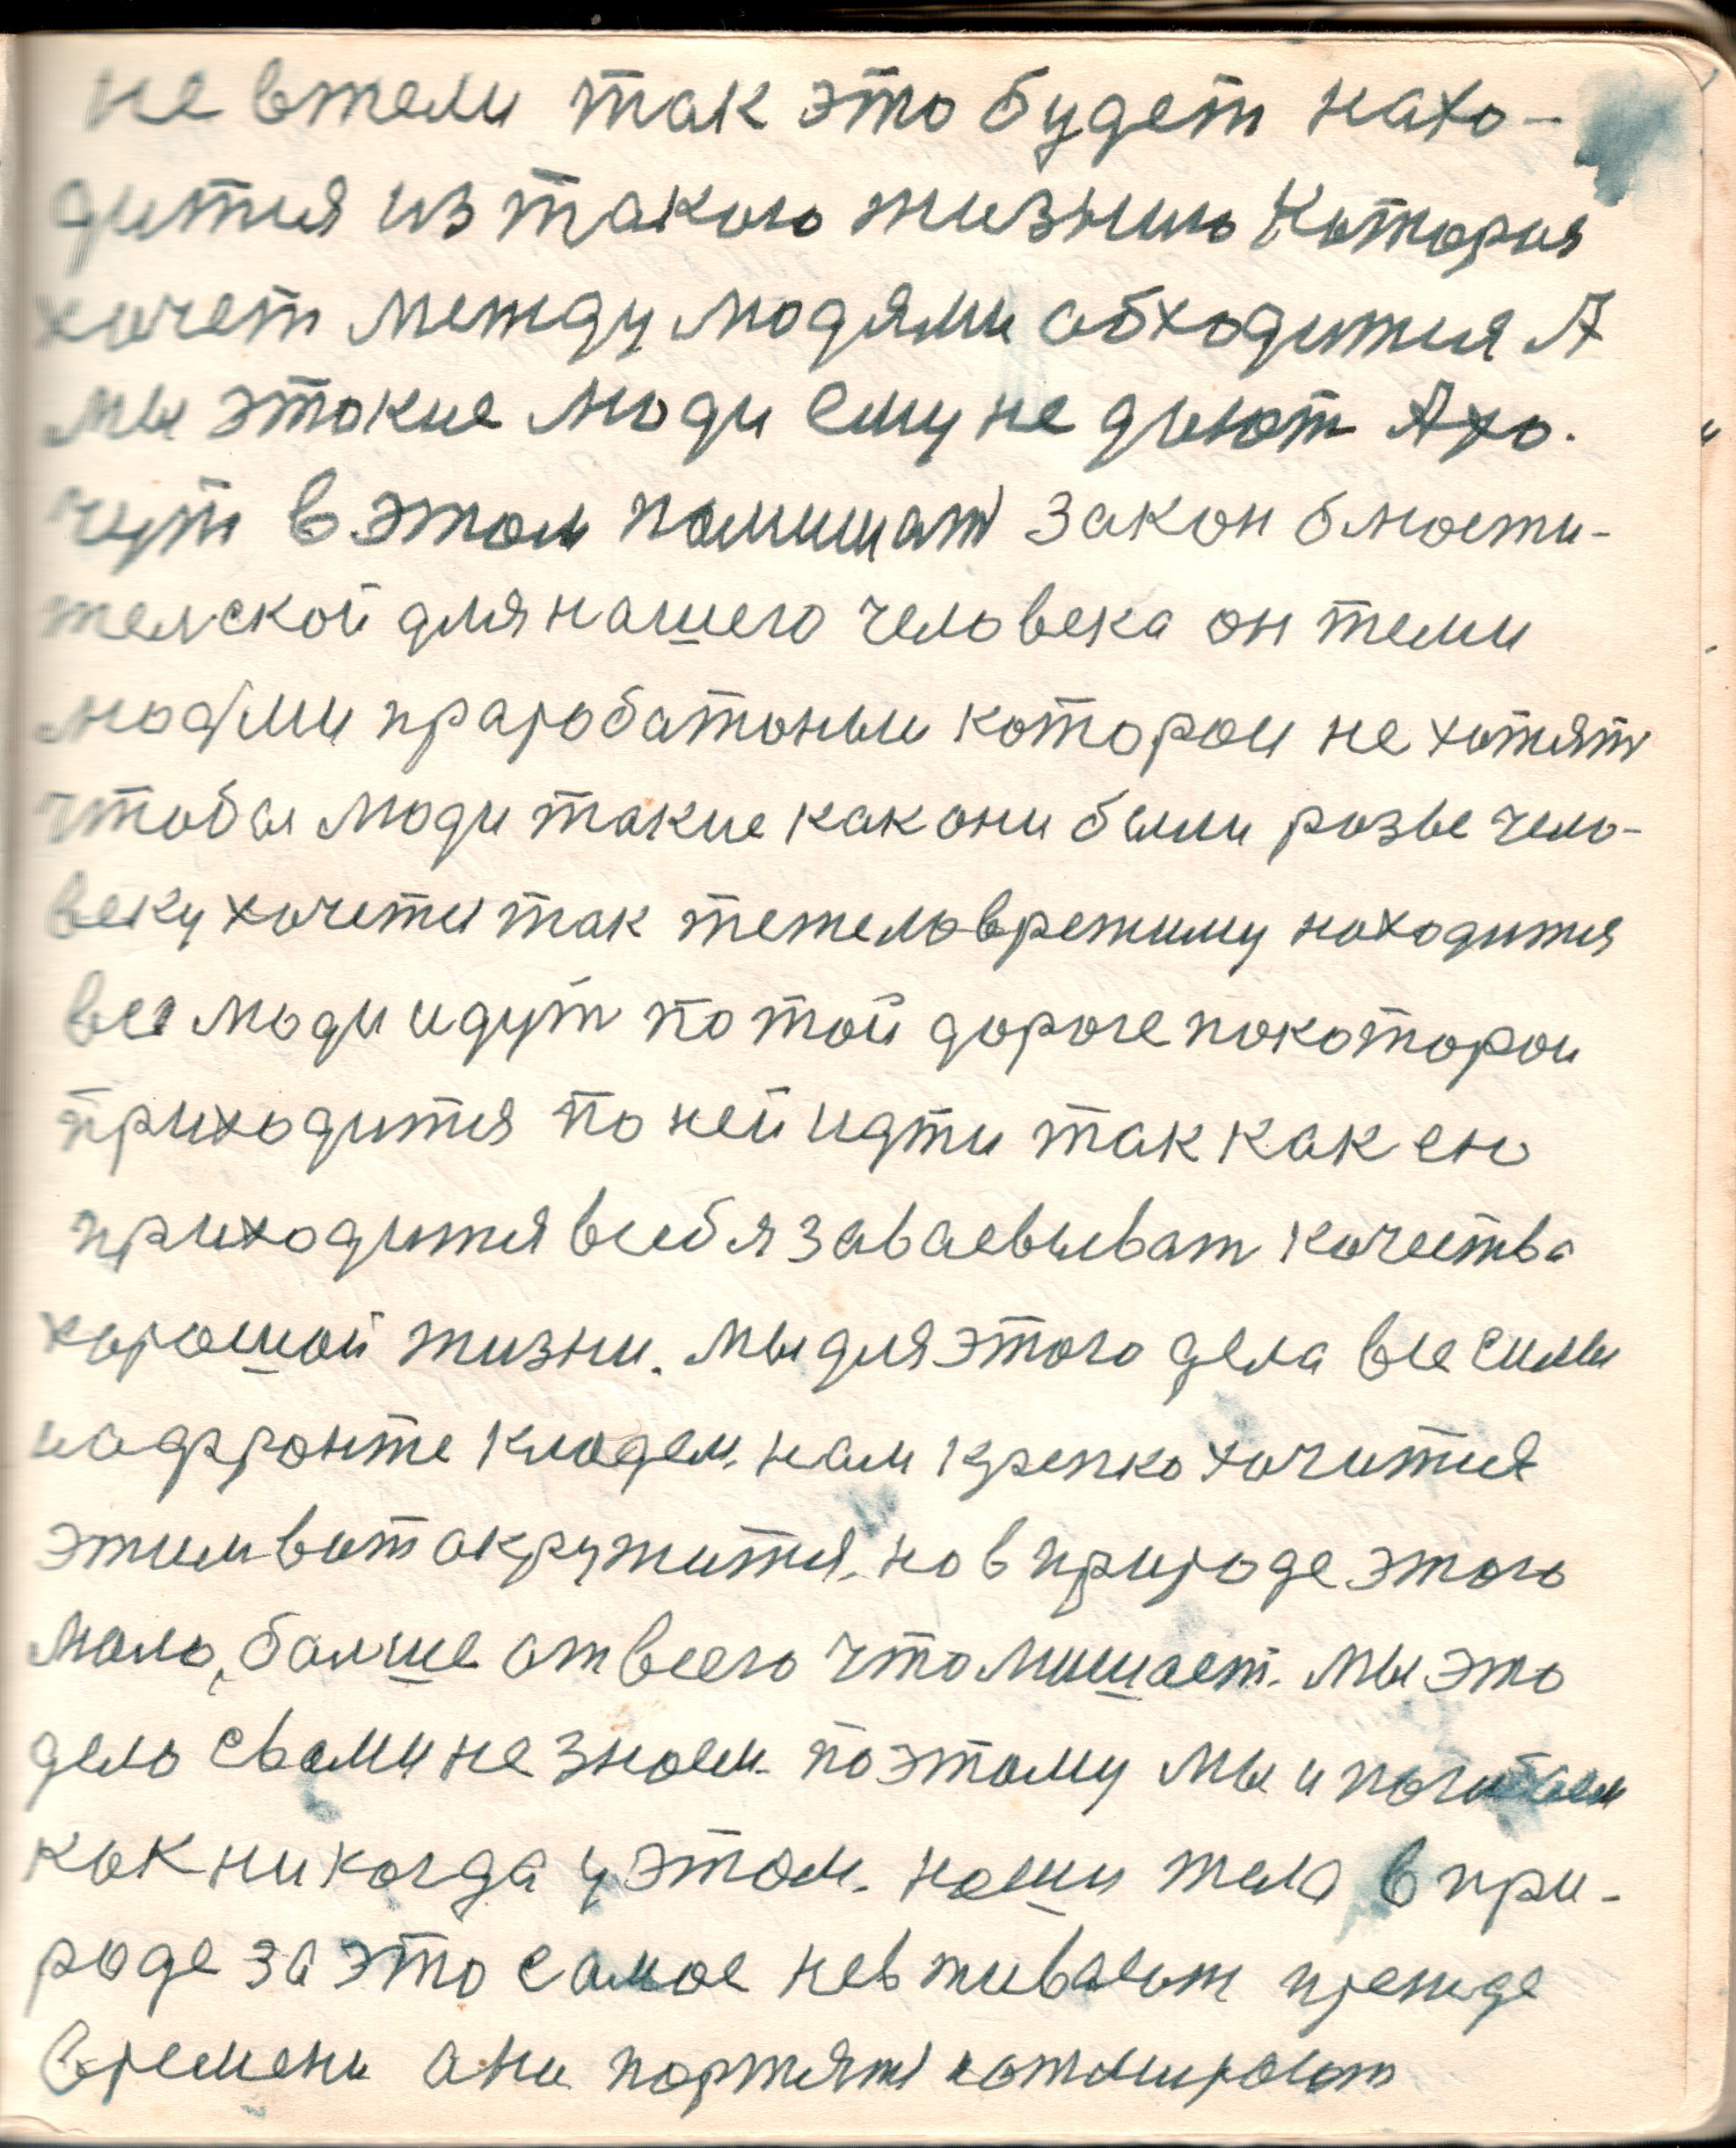 не втели так это будет нахо-
дится из такою жизнию Которая
хочет между людями обходится А
мы этокие люди ему не дают А хо-
чут в этом помишат закон блюсти-
телской для нашего человека он теми
людми праработаный которои не хотят
чтобы люди такие как они были розве чело-
веку хочется так тежело врежиму находится
все люди идут по той дороге покоторои
приходится по ней идти так как ею
приходится всебя заваевыват качества
хорошой жизни. мы для этого дела все силы
на фронте кладем. нам крепко хочится
этим вот окружится. но в природе этого
мало, болше от всего что мишает. мы это
дело свами не знаем. поэтому мы и погибаем
как никогда у этом. наши тела в при-
роде за это самое невживают прежде
времени они портят